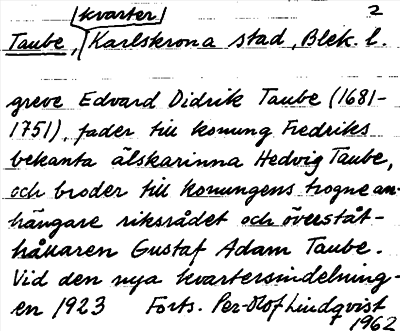 kvarter 2
Taube, Karlskrona stad, Blek. l.
greve Edvard Didrik Taube (1681-
1751), fader till konung Fredriks
bekanta älskarinna Hedvig Taube,
och broder till konungens trogne an-
hängare riksrådet och överståt-
hållaren Gustaf Adam Taube.
Vid den nya kvartersindelning-
en 1923 Forts. Per-Olof Lindqvist
1962